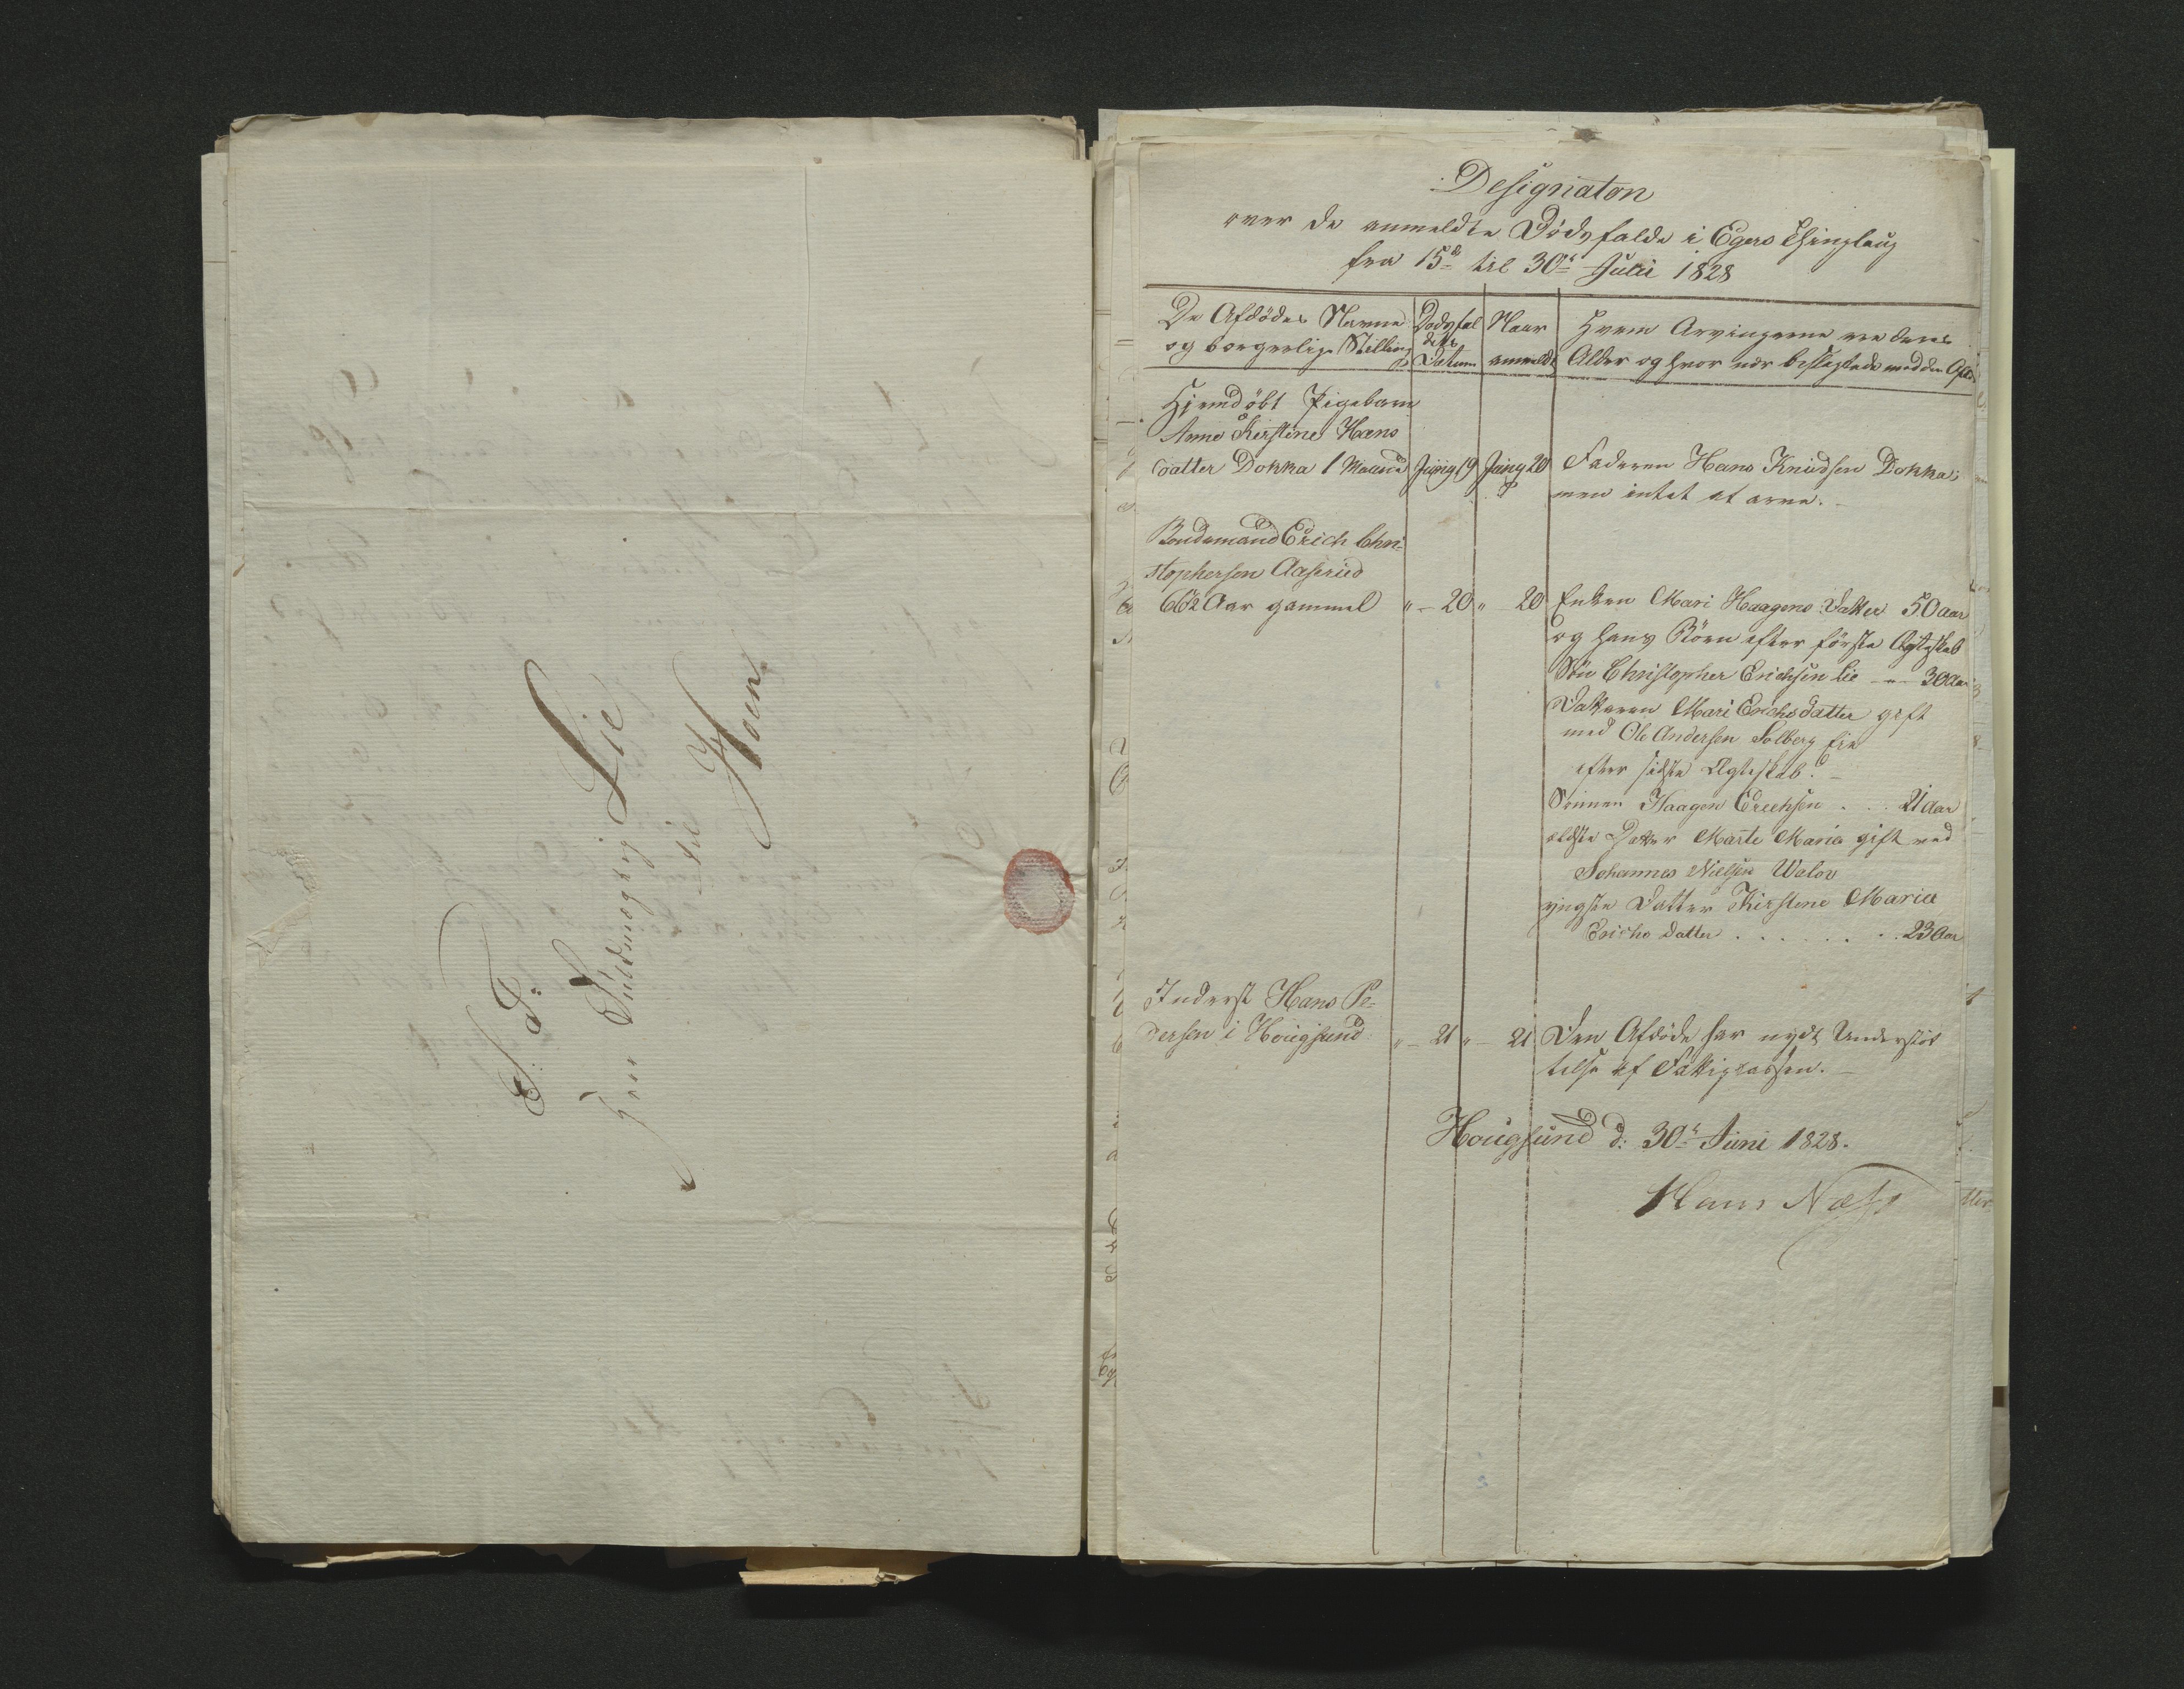 S. T.
Herr Fuldmægtig Lie
til
Hoen
Designation
over de anmeldte Dödsfalde i Egers Thinglaug
fra 15de til 30te Julii 1828
De Afdödes Navne
og borgerlige Stilling
Dödsfal
dets
Datum
Naar
anmeldt
Hvem Arvingerne ere deres
Alder og hvor nær beslægtede med den Afdö
Hjemdöbt Pigebarn
Anne Kirstine Hans
datter Dokka 1 Maaned Junÿ 19 Junÿ 20 Faderen Hans Knudsen Dokka;
men intet at arve.
Bondemand Erich Chri-
stophersen Aaserud
66½ Aar gammel " - 20 " - 20 Enken Mari Haagens Datter 50 aar
og hans Börn efter förste Ægteskab
Sön Christopher Erichsen Lie - " - 30 Aar
Datteren Mari Erichsdatter gift
med Ole Andersen Solberg Eie
efter sidste Ægteskab.
Sönnen Haagen Erichsen . . . 21 aar
ældste Datter Marte Maria gift med
Johannes Nielsen
yngste Datter Kirstine Maria
Erichs datter . . . . . . . 23 Aar
Inderst Hans Pe-
dersen i Hougsund " - 21 " - 21 Den Afdöde har nydt Understöt
telse af Fattigcassen.
Hougsund d: 30te Juni 1828.
Hans Næss